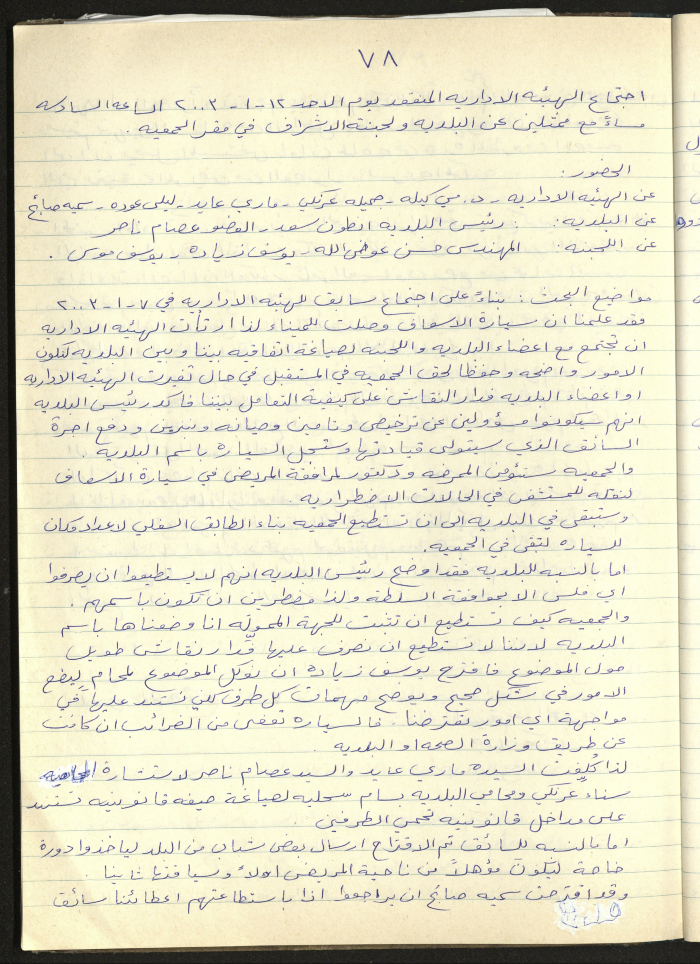 ٧٨
اجتماع الهيئه الاداريه المنعقد يوم الاحد ١٢-١-٢٠٠٣ الساعه السادسه
مساءً مع ممثلين عن البلديه ولجنة الاشراف في مقر الجمعيه .
الحضور :
عن الهيئه الاداريه - د. مي كيله - جميله عرنكي - ماري عايد - ليلى عوده - سميه صايغ
عن البلديه : رئيس البلديه انطون سعد - العضو عصام ناصر
عن اللجنه : المهندس حسن عوض الله - يوسف زياده - يوسف موسى .
مواضيع البحث : بناءً على اجتماع سابق للهيئه الاداريه في ٧-١-٢٠٠٣
فقد علمنا ان سيارة الاسعاف وصلت للميناء لذا ارتأت الهيئه الاداريه
ان تجتمع مع اعضاء البلديه واللجنه لصياغة اتفاقيه بيننا وبين البلديه لتكون
الامور واضحه وحفظا لحق الجمعيه في المستقبل في حال تغيرت الهيئه الاداريه
او اعضاء البلديه فدار النقاش على كيفية التعامل بيننا فاكد رئيس البلديه
انهم سيكونوا مسؤولين عن ترخيص وتامين وصيانه وبنزين ودفع اجرة
السائق الذي سيتولى قيادتها وستسجل السياره باسم البلديه .
والجمعيه ستؤمن الممرضه ودكتور لمرافقة المريض في سيارة الاسعاف
لنقله للمستشفى في الحالات الاضطراريه .
وستبقى في البلديه الى ان تستطيع الجمعيه بناء الطابق السفلي لاعداد مكان
للسياره لتبقى في الجمعيه .
اما بالنسبه للبلديه فقد اوضح رئيس البلديه انهم لا يستطيعوا ان يصرفوا
اي فلس الا بموافقة السلطه ولذا مضطرين ان تكون باسمهم .
والجمعيه كيف تستطيع ان تثبت للجهة المموله انا وضعناها باسم
البلديه لاننا لا نستطيع ان نصرف عليها فدار نقاش طويل
حول الموضوع فاقترح يوسف زياده ان نوكل الموضوع لمحام ليضع
الامور في شكل صحيح ويوضح مهمات كل طرف لكي نستند عليها في
مواجهة اي امور تعترضنا . فالسياره تعفى من الضرائب ان كانت
عن طريق وزارة الصحه او البلديه .
لذا كُلِّفت السيده ماري عايد والسيد عصام ناصر لاستشارة المحاميه
سناء عرنكي ومحامي البلديه بسام سحليه لصياغة صيغه قانونيه تستند
على مداخل قانونيه تحمي الطرفين
اما بالنسبه للسائق تم الاقتراح ارسال بعض شباب من البلد لياخذوا دورة
خاصة ليكون مؤهلاً من ناحية المريض اولاً وسياقتها ثانيا .
وقد اقترحت سميه صايغ ان يراجعوا اذا باستطاعتهم اعطائنا سائق